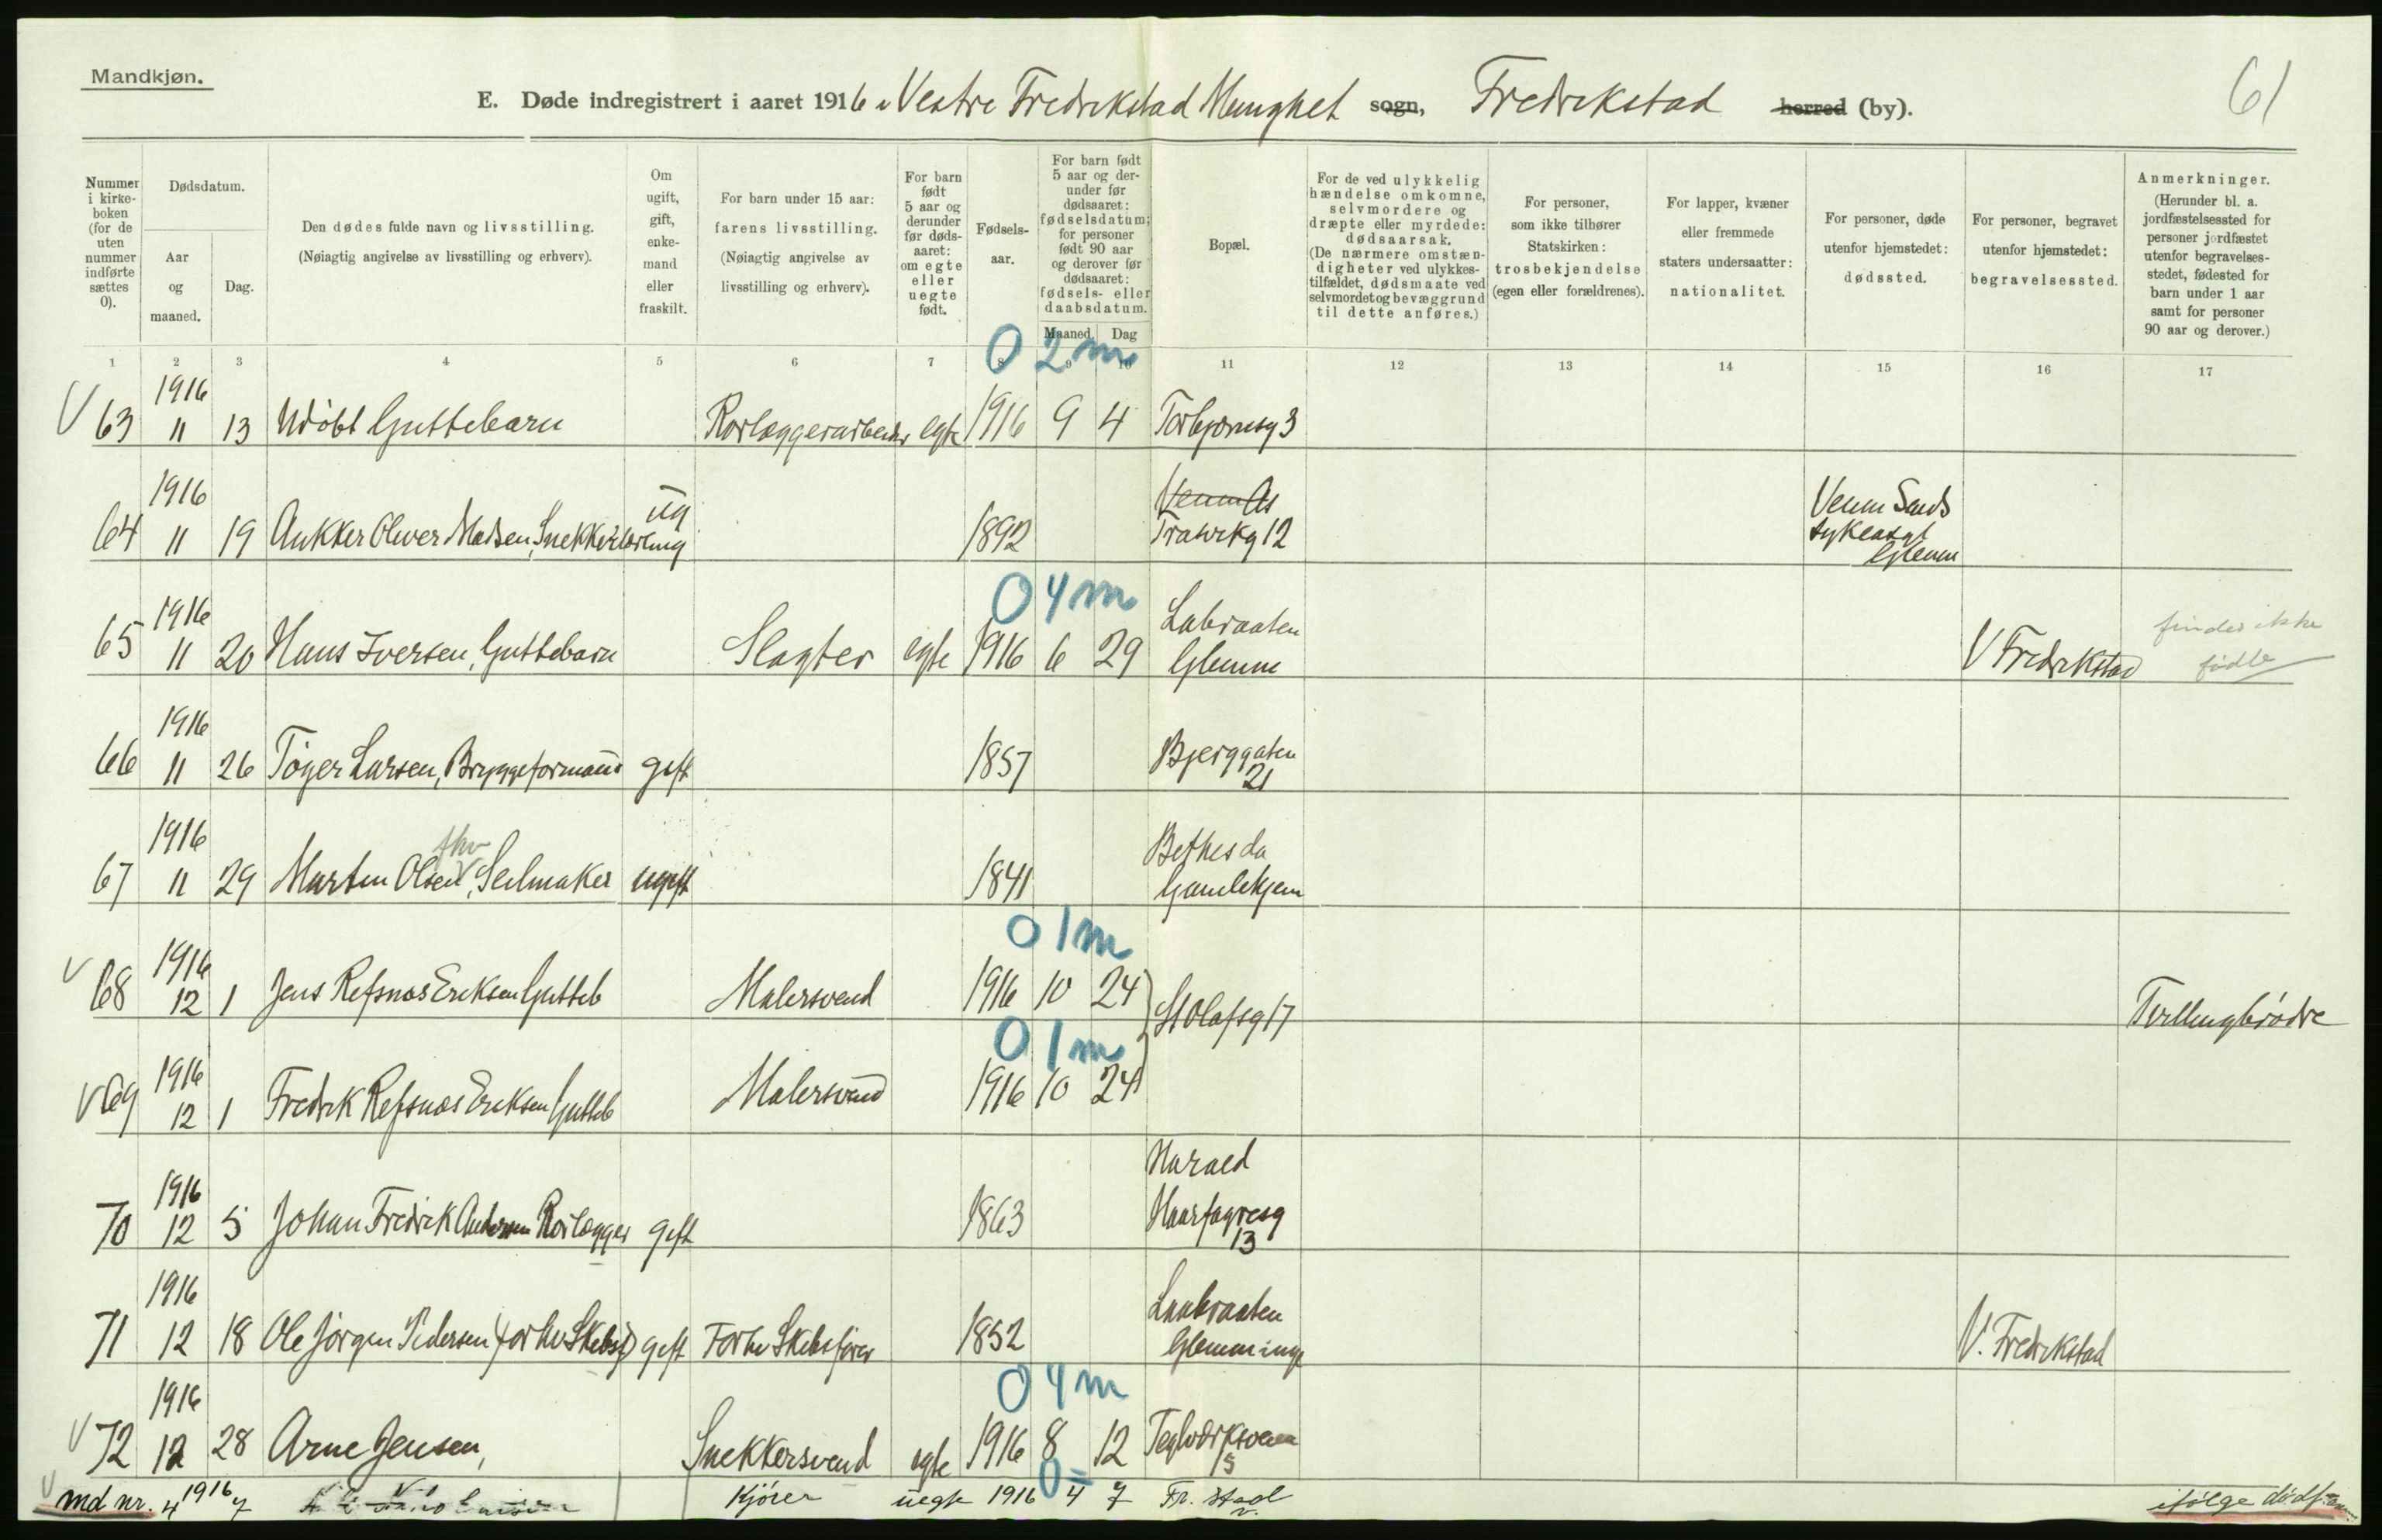 Mandkjøn.
61
E. Døde indregistrert i aaret 1916 i Vestre Fredrikstad Menighet sogn, Fredrikstad herred (by).
Nummer i kirkeboken (for de uten nummer indførte sættes 0).
Dødsdatum.
Aar og maaned.
Dag.
Den dødes fulde navn og livsstilling.
(Nøiagtig angivelse av livsstilling og erhverv).
Om ugift, gift, enkemand eller fraskilt.
For barn under 15 aar: farens livsstilling.
(Nøiagtig angivelse av livsstilling og erhverv).
For barn født 5 aar og derunder før dødsaaret: om egte eller uegte født.
Fødselsaar.
For barn født 5 aar og derunder før dødsaaret: fødselsdatum; for personer født 90 aar og derover før dødsaaret: fødsels- eller daabsdatum.
Maaned Dag
Bopæl.
For de ved ulykkelig hændelse omkomne, selvmordere og dræpte eller myrdede: dødsaarsak.
(De nærmere omstændigheter ved ulykkestilfældet, dødsmaate ved selvmordet og bevæggrund til dette anføres.)
For personer, som ikke tilhører Statskirken: trosbekjendelse (egen eller forældrenes).
For lapper, kvæner eller fremmede staters undersaatter: nationalitet.
For personer, døde utenfor hjemstedet: dødssted.
For personer, begravet utenfor hjemstedet: begravelsessted.
Anmerkninger.
(Herunder bl. a. jordfæstelsessted for personer jordfæstet utenfor begravelsesstedet, fødested for barn under 1 aar samt for personer 90 aar og derover.)
1 2 3 4 5 6 7 8 9 10 11 12 13 14 15 16 17
0 2 m
V 63 1916 11 13 Udøbt Guttebarn Rørlæggerarbeider egte 1916 9 4 Torbjørnsg 3
64 1916 11 19 Ankker Oliver Madsen, Snekkerlærling ug 1892 Trarvikg 12
sykeasyl
Glemm
0 4 m
65 1916 11 20 Hans Iversen, Guttebarn Slagter egte 1916 6 29 Labraaten Glemm V Fredrikstad finder ikke fødte
66 1916 11 26 Tøger Larsen, Bryggeformand gift 1857 Bjerggaten 21
67 1916 11 29 Martin Olsen, fhv Seilmaker ugift 1841 Bethesda Gamlehjem
0 1 m
V 68 1916 12 1 Jens Refsnæs Eriksen Gutteb Malersvend 1916 10 24 St Olafsg 17 Tvillingbrødre
0 1 m
V 69 1916 12 1 Fredrik Refsnæs Eriksen Gutteb Malersvend 1916 10 24
70 1916 12 5 Johan Fredrik Andersen Rørlægger gift 1863 Harald Haarfagresg 13
71 1916 12 18 Ole Jørgen Pedersen (forhv Skibsf) gift Forhv Skibsfører 1852 Labraaten Glemminge V. Fredrikstad
0 4 m
V 72 1916 12 28 Arne Jensen, Snekkersvend egte 1916 8 12 Teglværksveien 15
V md nr. 1916 4 7 Kjører uegte 1916 4 7 Fr. stad v. ifølge dødf.anm.
0 =